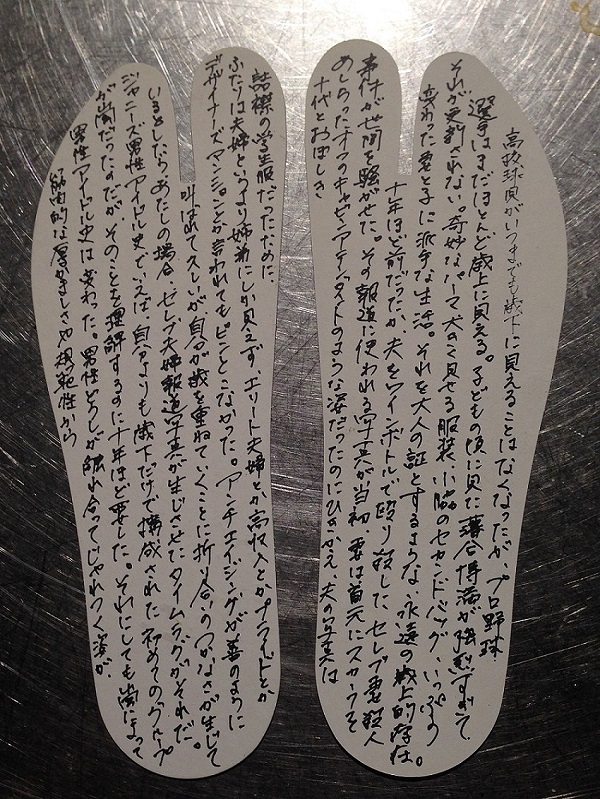 高校球児がいつまでも歳下に見えることはなくなったが、プロ野球
選手はまだほとんど歳上に見える。子どもの頃に見た落合博満が強烈すぎて、
それが更新されない。奇妙なパーマ、大きく見せる服装、小脇のセカンドバッグ、いっぷう
変わった妻と子に派手な生活。それを大人の証とするような、永遠の歳上的存在。
十年ほど前だったか、夫をワインボトルで殴り殺した、セレブ妻殺人
事件が世間を騒がせた。その報道に使われる写真が当初、妻は首元にスカーフを
あしらったキャビンアテンダントのような姿だったのにひきかえ、夫の写真は
十代とおぼしき
詰襟の学生服だったために、
ふたりは夫婦というより姉弟にしか見えず、エリート夫婦とか高収入とかプライドとか
デザイナーズマンションとか言われてもピンとこなかった。アンチエイジングが善のように
叫ばれて久しいが、自分が歳を重ねていくことに折り合いのつかなさが生じて
いるとしたら、あたしの場合、セレブ夫婦報道写真が生じさせたタイムラグがそれだ。
ジャニーズ男性アイドル史でいえば、自分よりも歳下だけで構成された初めてのグループ
が嵐だったのだが、そのことを理解するのに十年ほど要した。それにしても嵐によって
男性アイドル史は変わった。男性どうしが触れ合ってじゃれつく姿が
筋肉的な厚かましさや規範性から